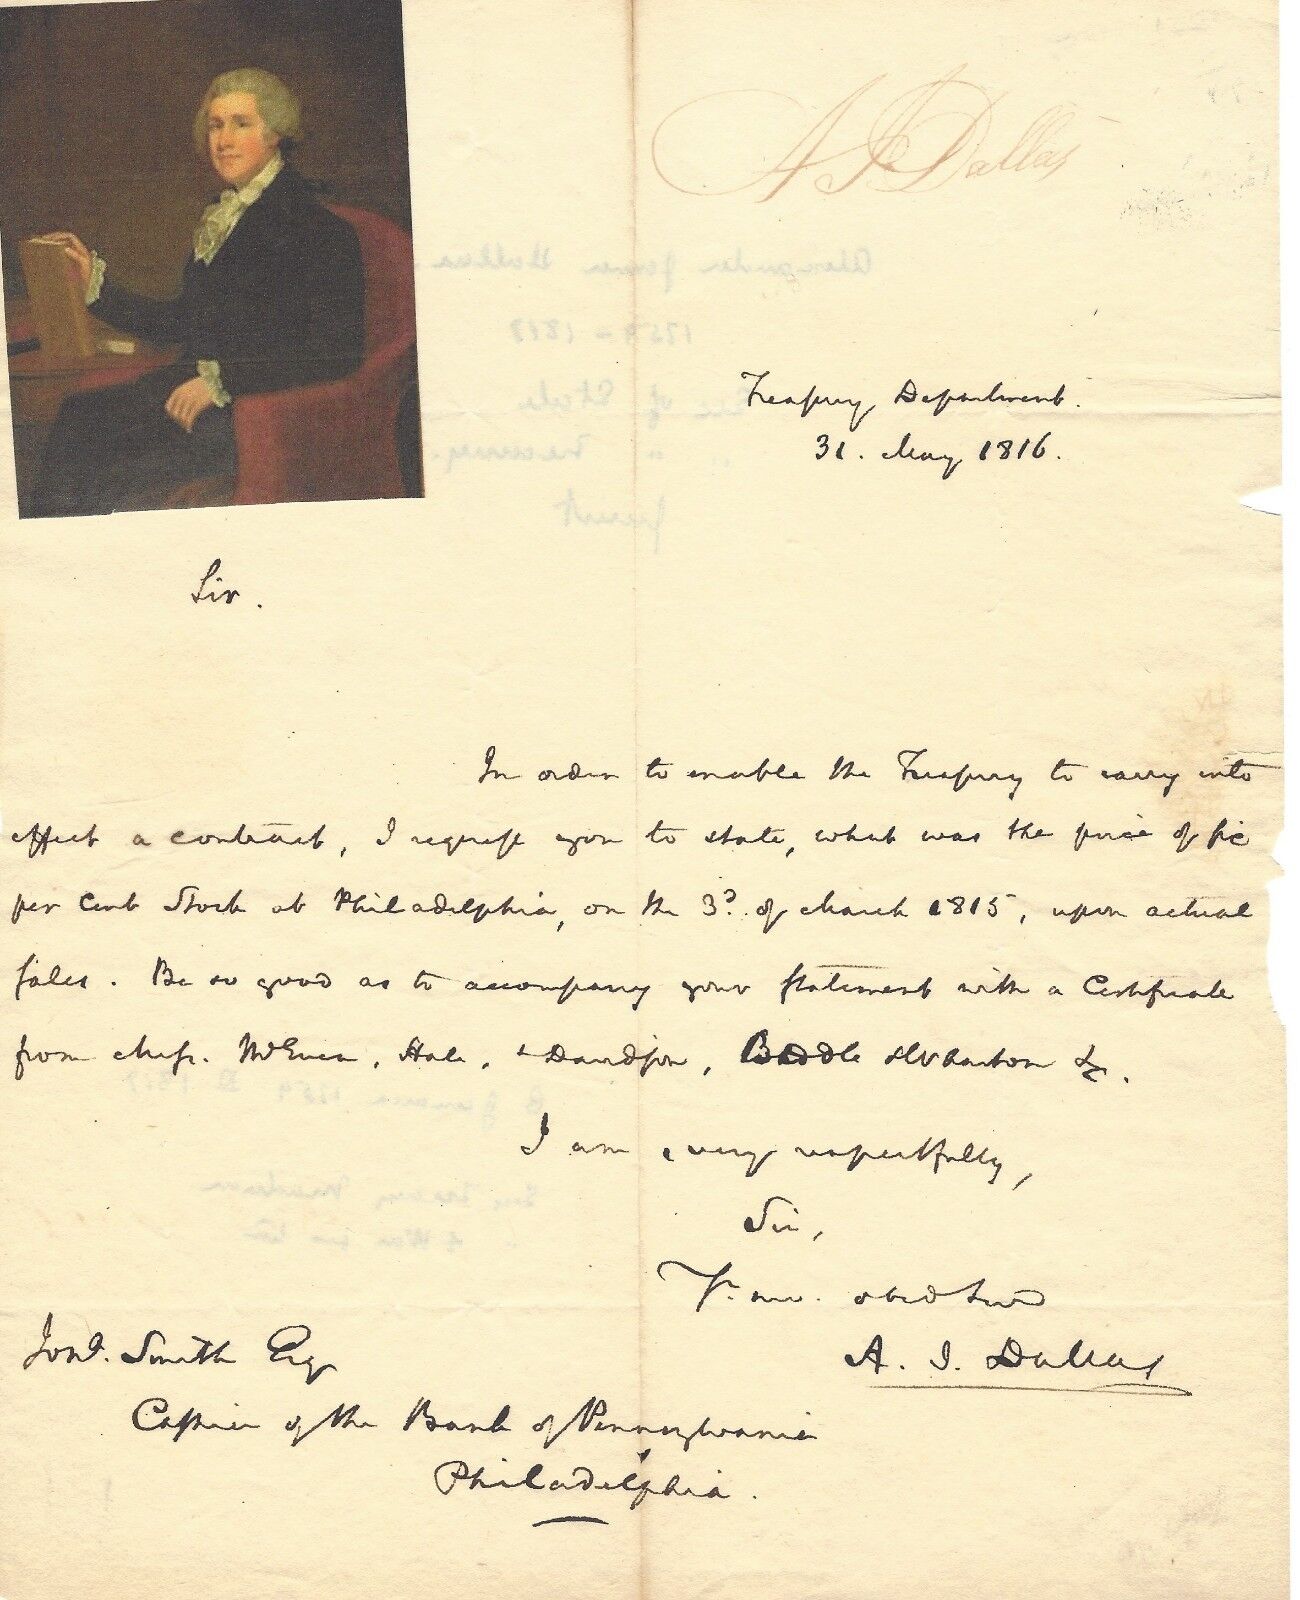 A J Dallas
Treasury Department.
31. May 1816.
Sir.
In order to enable the Treasury to carry into
effect a contract, I request you to state, what was the price of six
per Cent Stock at Philadelphia, on the 3d. of March 1815, upon actual
sales. Be so good as to accompany your statement with a Certificate
from Messrs. McEuen, Hale, & Davidson, Biddle & Wharton &c.
I am, very respectfully,
Sir,
Yr. mo. obed Servt
A. J. Dallas
Jond. Smith Esq
Cashier of the Bank of Pennsylvania
Philadelphia.